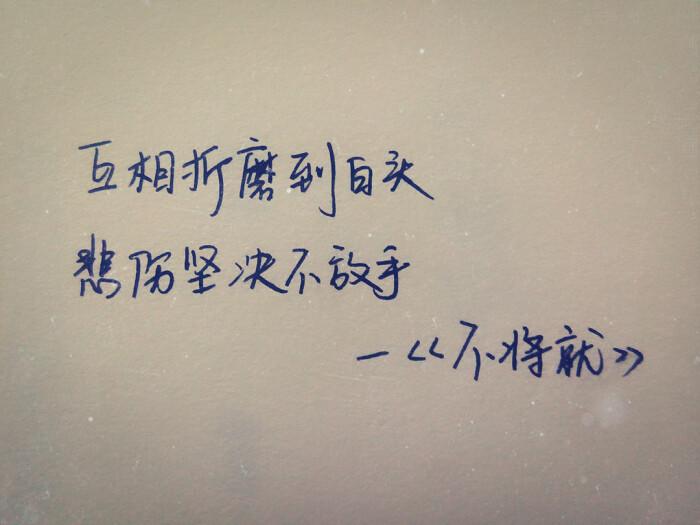 互相折磨到白头
悲伤坚决不放手
—《不将就》